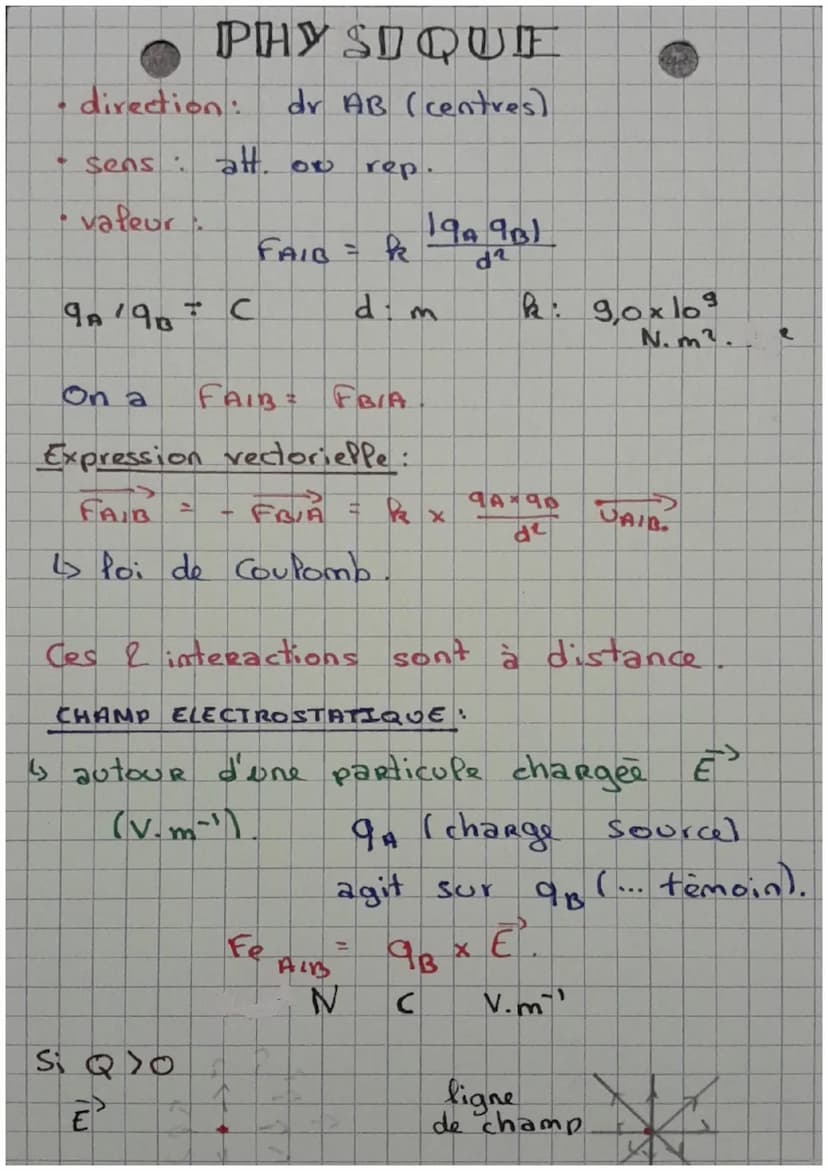 PHYSIQUE
• direction : dr AB (centres)
• sens : att. ou rep.
• valeur :
F A/B = k |qA qB| / d²
qA / qB : C d : m k : 9,0 × 10⁹
N. m².
On a F A/B = F B/A.
Expression vectorielle :
F A/B = - F B/A = k × qA × qB / d² U A/B.
↳ loi de Coulomb.
Ces 2 interactions sont à distance.
CHAMP ELECTROSTATIQUE :
↳ autour d'une particule chargée E⃗
(V.m⁻¹). qA (charge source)
agit sur qB (... témoin).
Fe A/B = qB × E⃗.
N C V.m⁻¹
Si Q > 0
E⃗
ligne
de champ